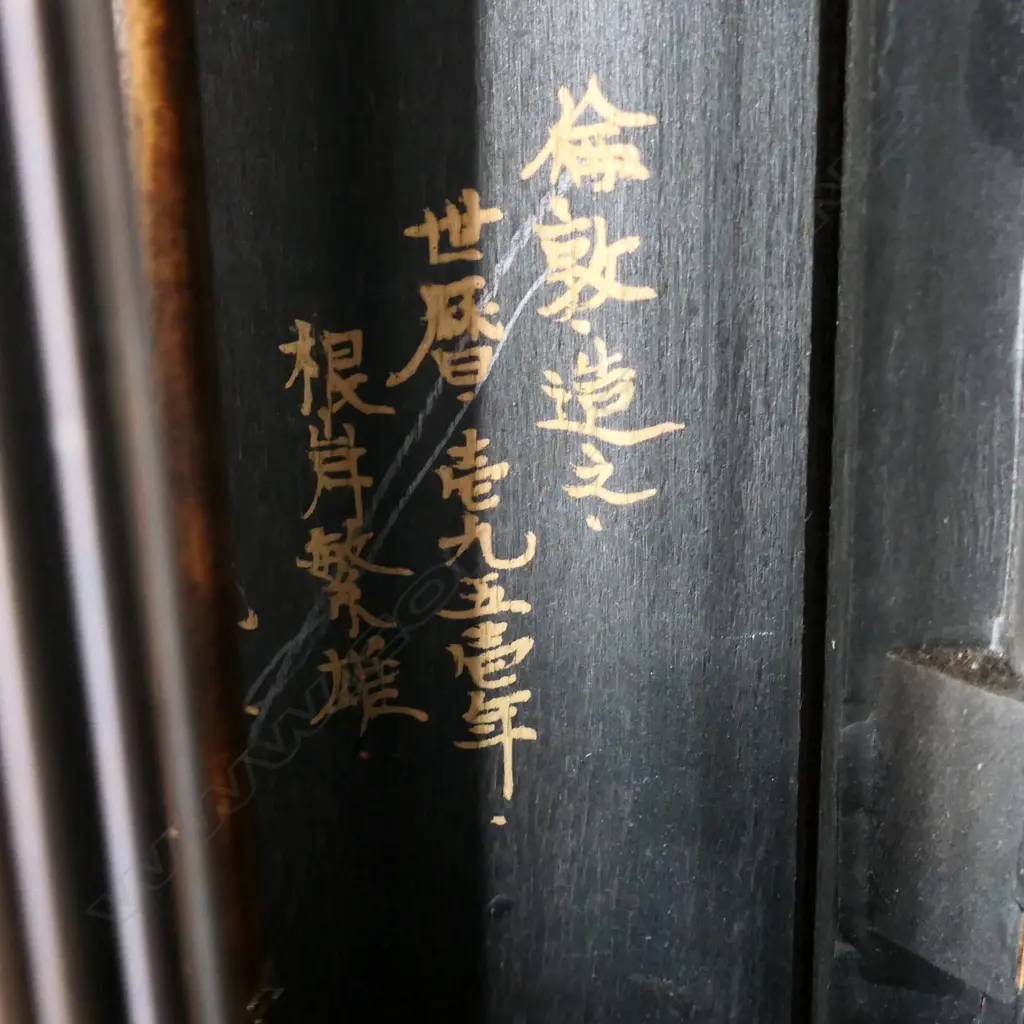 倫敦造之
世暦壱九五壱年
根岸繁雄